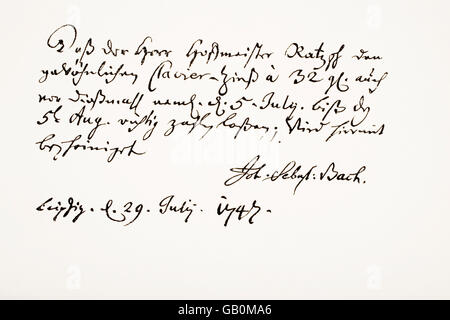 Daß der Herr Hoffmeister Ratzpf den
gewöhnlichen Clavier-Zinß à 32 gl. auch
vor dießmahl neml. d. 5. July. biß d.
5t Aug. richtig zahlen laßen; Wird hiermit
bescheiniget
Joh: Sebast: Bach.
Leipzig. d. 29. July. 1747.
alamy
GB0MA6
www.alamy.com